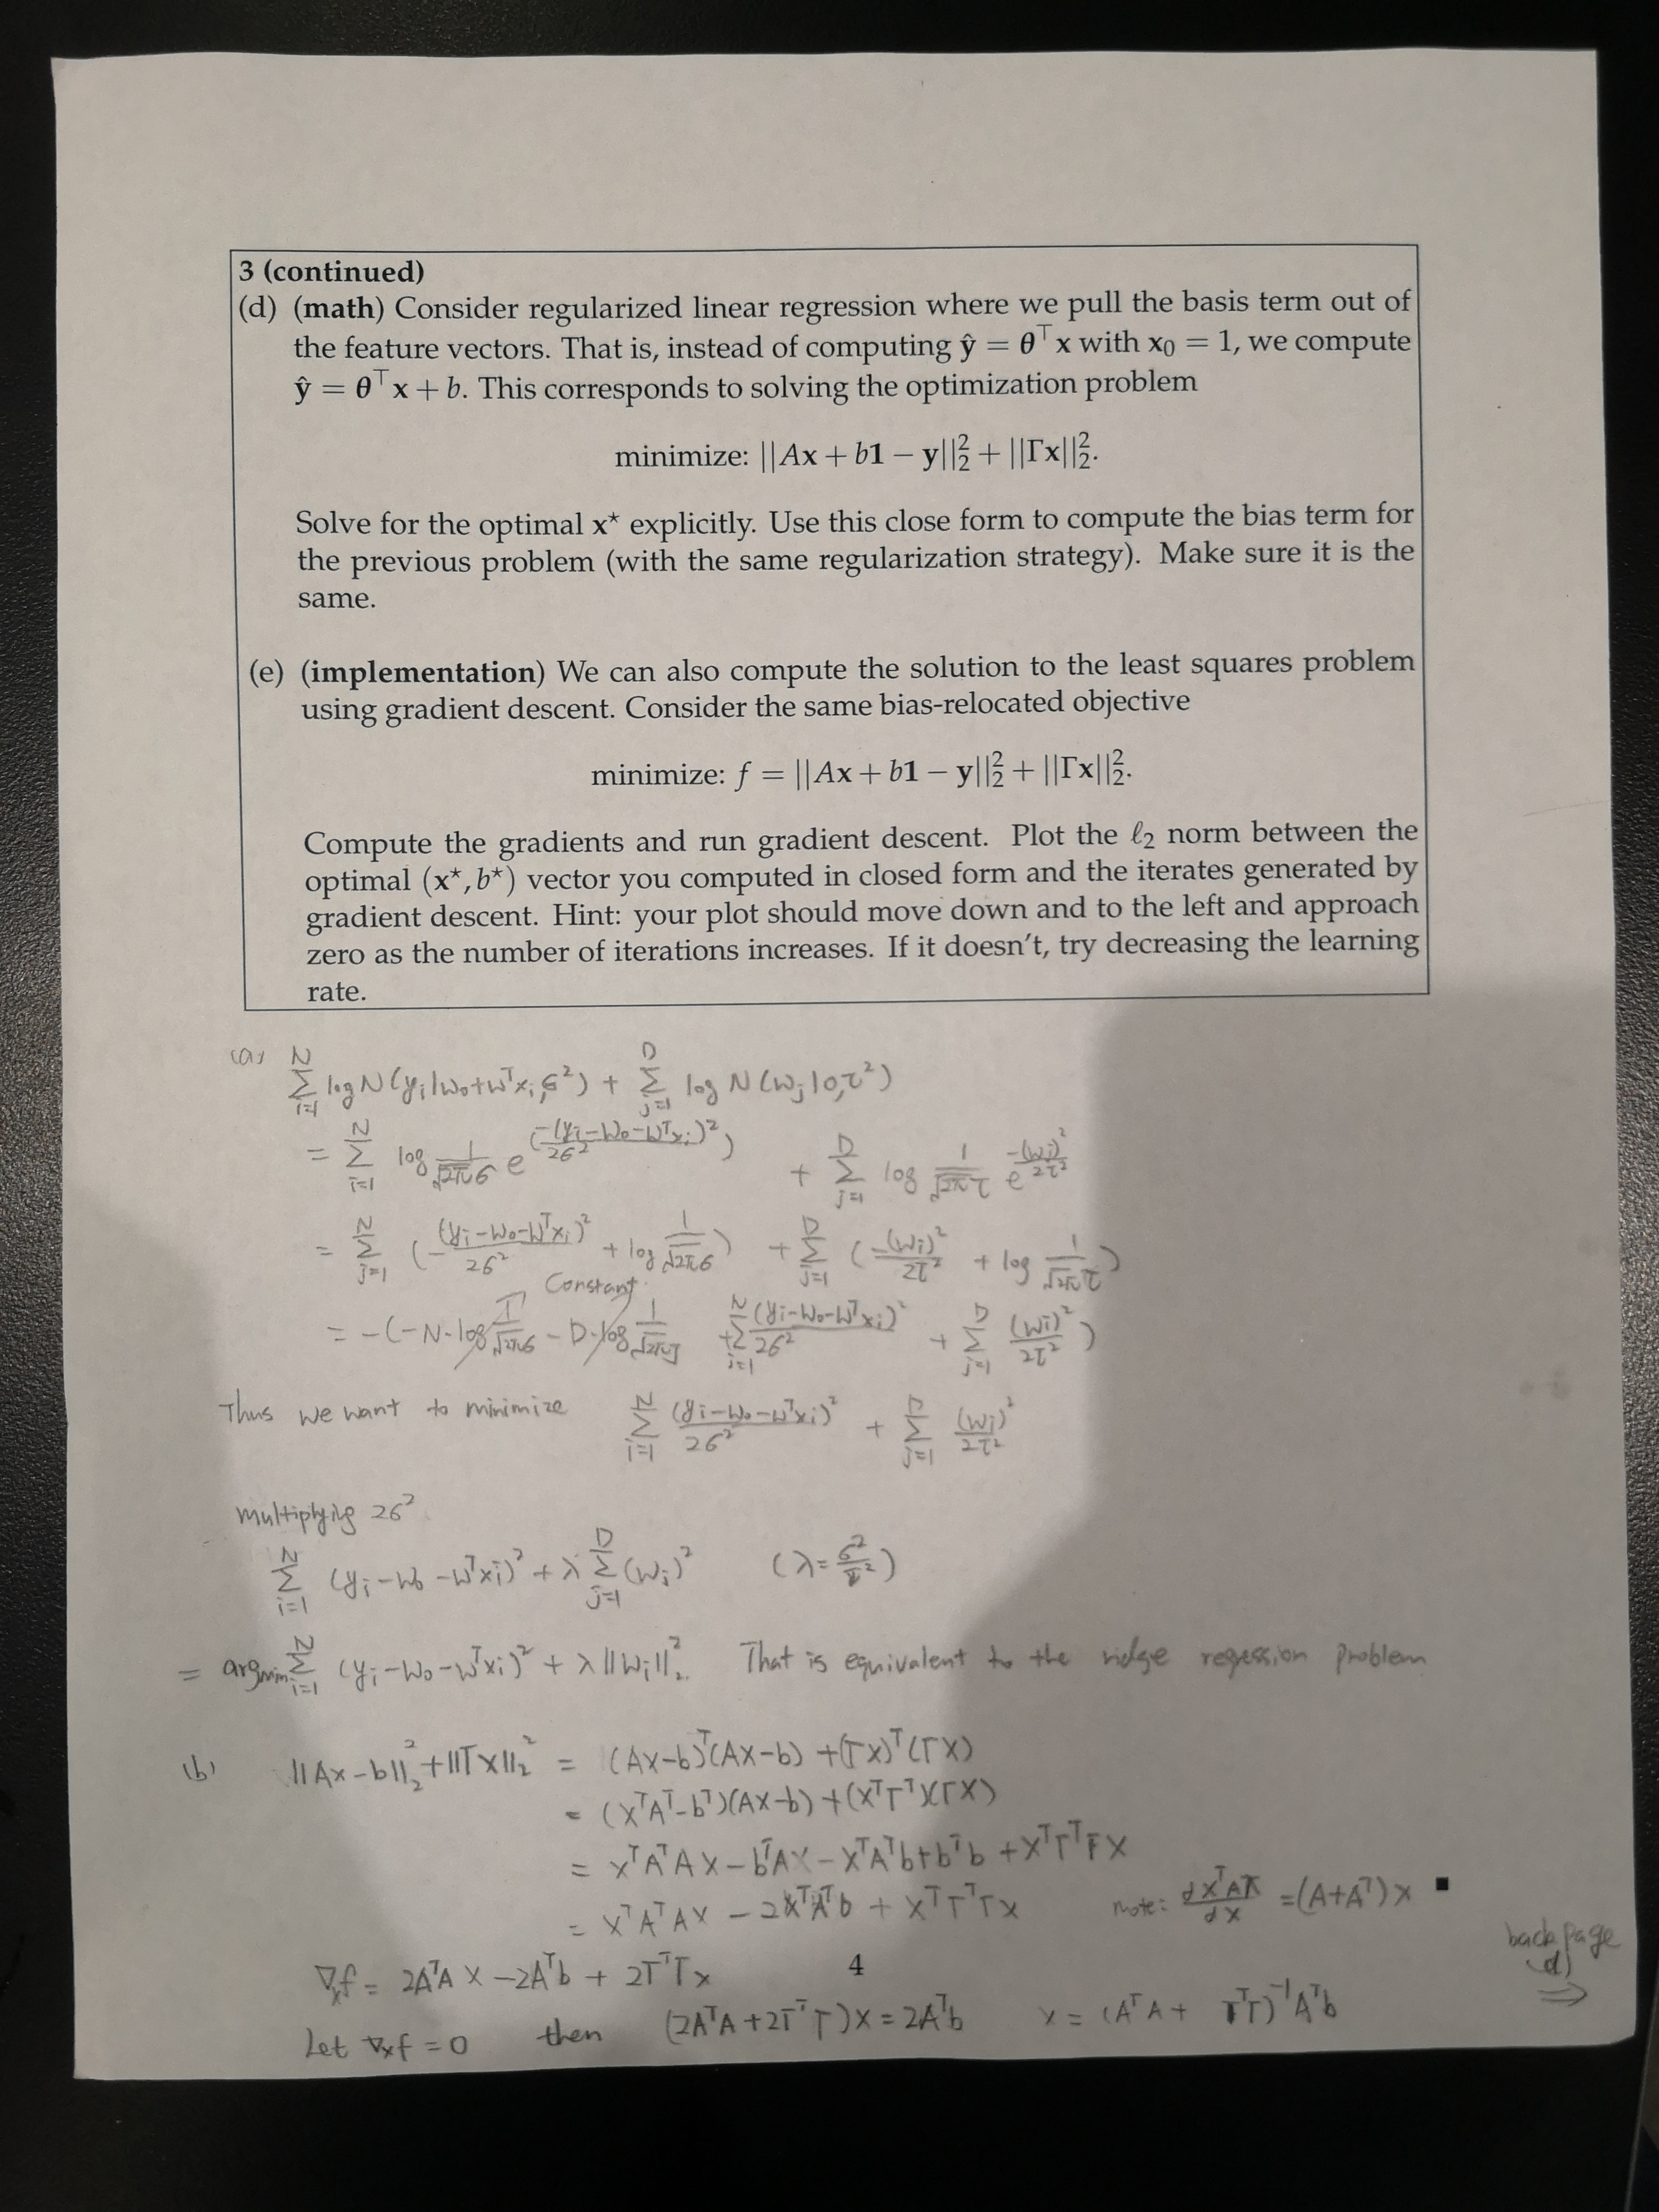 3 (continued)
(d) (math) Consider regularized linear regression where we pull the basis term out of
the feature vectors. That is, instead of computing ŷ = θ⊤x with x₀ = 1, we compute
ŷ = θ⊤x + b. This corresponds to solving the optimization problem
minimize: ||Ax + b1 − y||₂² + ||Γx||₂².
Solve for the optimal x⋆ explicitly. Use this close form to compute the bias term for
the previous problem (with the same regularization strategy). Make sure it is the
same.
(e) (implementation) We can also compute the solution to the least squares problem
using gradient descent. Consider the same bias-relocated objective
minimize: f = ||Ax + b1 − y||₂² + ||Γx||₂².
Compute the gradients and run gradient descent. Plot the ℓ₂ norm between the
optimal (x⋆, b⋆) vector you computed in closed form and the iterates generated by
gradient descent. Hint: your plot should move down and to the left and approach
zero as the number of iterations increases. If it doesn't, try decreasing the learning
rate.
(a) ∑_{i=1}^{N} log N(y_i|w₀+w^T x_i, σ²) + ∑_{j=1}^{D} log N(w_j|0,τ²)
= ∑_{i=1}^{N} log 1/(√(2π)σ) e^(−(y_i−w₀−w^T x_i)²/2σ²) + ∑_{j=1}^{D} log 1/(√(2π)τ) e^(−(w_i)²/2τ²)
= ∑_{j=1}^{N} (−(y_i−w₀−w^T x_i)²/2σ² + log 1/(√(2π)σ)) + ∑_{j=1}^{D} (−(w_i)²/2τ² + log 1/(√(2π)τ))
Constant
= −(−N·log 1/(√(2π)σ) − D·log 1/(√(2π)τ) + ∑_{i=1}^{N} (y_i−w₀−w^T x_i)²/2σ² + ∑_{j=1}^{D} (w_i)²/2τ²)
Thus we want to minimize ∑_{i=1}^{N} (y_i−w₀−w^T x_i)²/2σ² + ∑_{j=1}^{D} (w_j)²/2τ²
multiplying 2σ²
∑_{i=1}^{N} (y_i−w₀−w^T x_i)² + λ ∑_{j=1}^{D} (w_i)² (λ=σ²/τ²)
= argmin ∑_{i=1}^{N} (y_i−w₀−w^T x_i)² + λ||w_i||₂². That is equivalent to the ridge regression problem
(b) ||Ax−b||₂²+||Γx||₂² = (Ax−b)^T(Ax−b) + (Γx)^T(Γx)
= (x^T A^T−b^T)(Ax−b) + (x^T Γ^T)(Γx)
= x^T A^T A x − b^T A x − x^T A^T b + b^T b + x^T Γ^T Γ x
= x^T A^T A x − 2x^T A^T b + x^T Γ^T Γ x note: dx^T A x/dx = (A+A^T)x ■
back page
(d)
⇒
∇ₓf = 2A^T A x − 2A^T b + 2Γ^T Γ x
4
Let ∇ₓf = 0 then (2A^T A + 2Γ^T Γ)x = 2A^T b x = (A^T A + Γ^T Γ)^{−1} A^T b